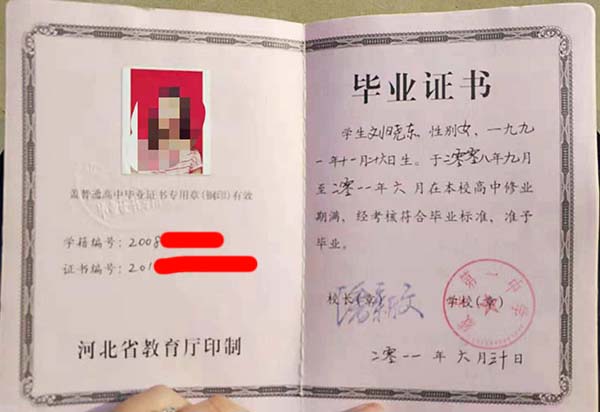 盖普通高中毕业证书专用章(钢印)有效
学籍编号：2008
证书编号：201
河北省教育厅印制
毕业证书
学生刘晓东，性别女，一九九
一年十一月十六日生。于二零零八年九月
至二零一一年六月在本校高中修业
期满，经考核符合毕业标准，准予
毕业。
校长(章)
学校(章)
第一中学
二零一一年六月三十日